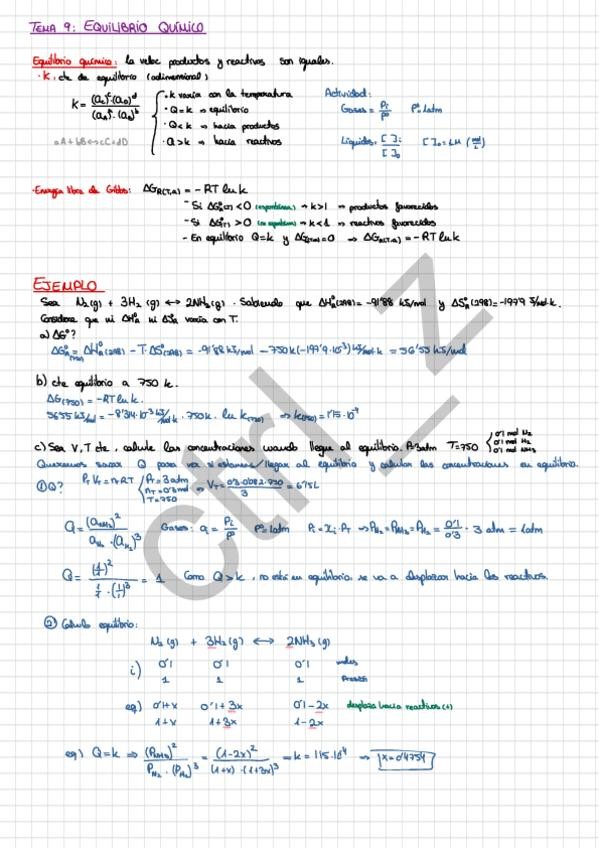 TEMA 9: EQUILIBRIO QUÍMICO
Equilibrio químico: la veloc productos y reactivos son iguales.
· K, cte de equilibrio (adimensional)
K = (a_C)^c·(a_D)^d / (a_A)^a·(a_B)^b
aA + bB ↔ cC + dD
· K varía con la temperatura
· Q=K → equilibrio
· Q<K → hacia productos
· Q>K → hacia reactivos
Actividad:
Gases = Pi/P° P°=1atm
Líquidos = [ ]i/[ ]o [ ]o=1M (mol/L)
· Energía libre de Gibbs: ΔG°R(T,a) = -RT ln K
- Si ΔG°R(T) < 0 (espontánea) → K>1 → productos favorecidos
- Si ΔG°(T) > 0 (no espontánea) → K<1 → reactivos favorecidos
- En equilibrio Q=K y ΔG(T,a)=0 → ΔGR(T,a) = -RT ln K
EJEMPLO
Sea N2(g) + 3H2(g) ↔ 2NH3(g). Sabiendo que ΔH°R(298)= -91'88 kJ/mol y ΔS°R(298)= -197'9 J/mol·K.
Considere que ni ΔH°R ni ΔS°R varía con T.
a) ΔG°?
ΔG°R(750) = ΔH°R(298) - T·ΔS°(298) = -91'88 kJ/mol - 750K(-197'9·10^-3) kJ/mol·K = 56'55 kJ/mol
b) cte equilibrio a 750 K.
ΔG(750) = -RT ln K.
56'55 kJ/mol = -8'314·10^-3 kJ/mol·K · 750K. ln K(750) → K(750) = 1'15·10^-4
c) Sea V,T cte, calcule las concentraciones cuando llegue al equilibrio. P=3atm T=750
0'1 mol N2
0'1 mol H2
0'1 mol NH3
Queremos sacar Q para ver si estamos/llegar al equilibrio y calcular las concentraciones en equilibrio.
① Q? PT VT = nT RT
PT = 3atm
nT = 0'3mol
T=750
→ VT = 0'3·0'082·750 / 3 = 6'15L
Q = (a_NH3)^2 / a_N2·(a_H2)^3 Gases: ai = Pi/P° P°=1atm Pi = xi·PT → PN2 = PNH3 = PH2 = 0'1/0'3 · 3 atm = 1atm
Q = (1/1)^2 / 1/1·(1/1)^3 = 1 Como Q>K, no está en equilibrio, se va a desplazar hacia los reactivos.
② Cálculo equilibrio:
N2(g) + 3H2(g) ↔ 2NH3(g)
i) 0'1 0'1 0'1 moles
1 1 1 Presión
eq) 0'1+x 0'1+3x 0'1-2x desplaza hacia reactivos (+)
1+x 1+3x 1-2x
eq) Q=K → (PNH3)^2 / PN2·(PH2)^3 = (1-2x)^2 / (1+x)·(1+3x)^3 = K = 1'15·10^-4 → x=0'4754
Ctrl_Z